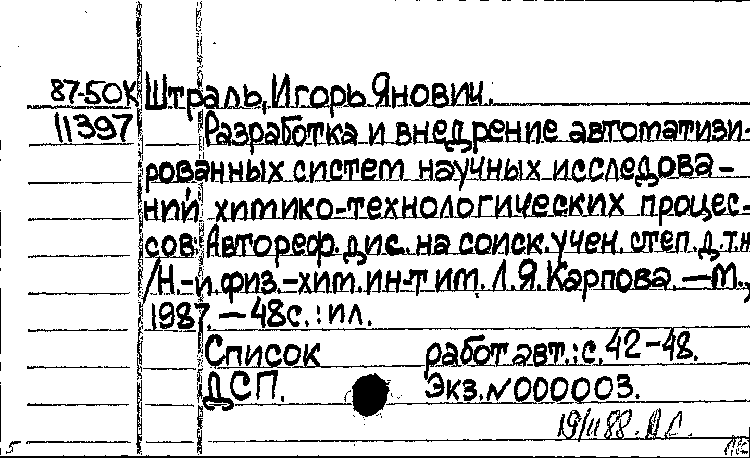 87-50К Штраль, Игорь Янович.
11397 Разработка и внедрение автоматизи-
рованных систем научных исследова-
ний химико-технологических процес-
сов: Автореф. дис. на соиск. учен. степ. д.т.н
/Н.-и. физ.-хим. ин-т им. Л.Я. Карпова. — М.,
1987. — 48с. : ил.
Список работ авт.: с. 42-48.
ДСП. Экз. N 000003.
5